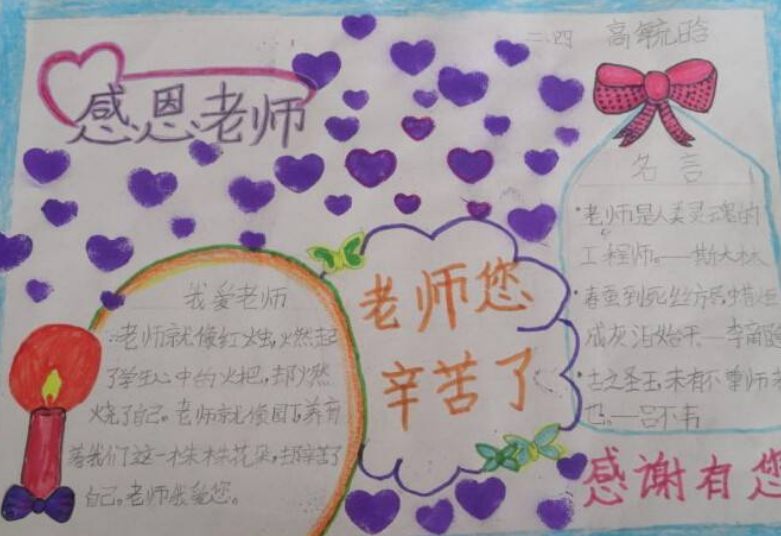 二、四
感恩老师
名言
·老师是人类灵魂的
工程师。——斯大林
·春蚕到死丝方尽蜡炬
成灰泪始干—李商隐
·古之圣王,未有不尊师者
也。—吕不韦
我爱老师
老师就像红烛,燃起
了学生心中的火把,却燃
烧了自己。老师就像园丁,养育
着我们这一株株花朵,却辛苦了
自己。老师我爱您。
老师您
辛苦了
感谢有您